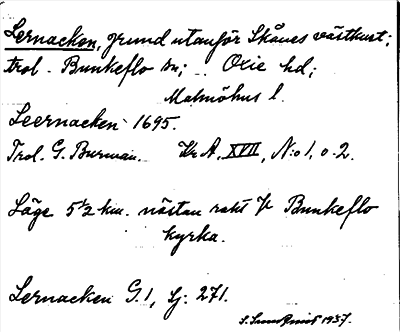 Lernacken, grund utanför Skånes västkust;
trol. Bunkeflo sn; .. Oxie hd;
Malmöhus l.
Leernacken 1695.
Trol. G. Burman. Kr A, XVII, N:o 1, o. 2.
Läge 5½ km. nästan rakt V Bunkeflo
kyrka.
Lernacken G. 1, Sj: 271.
1937.